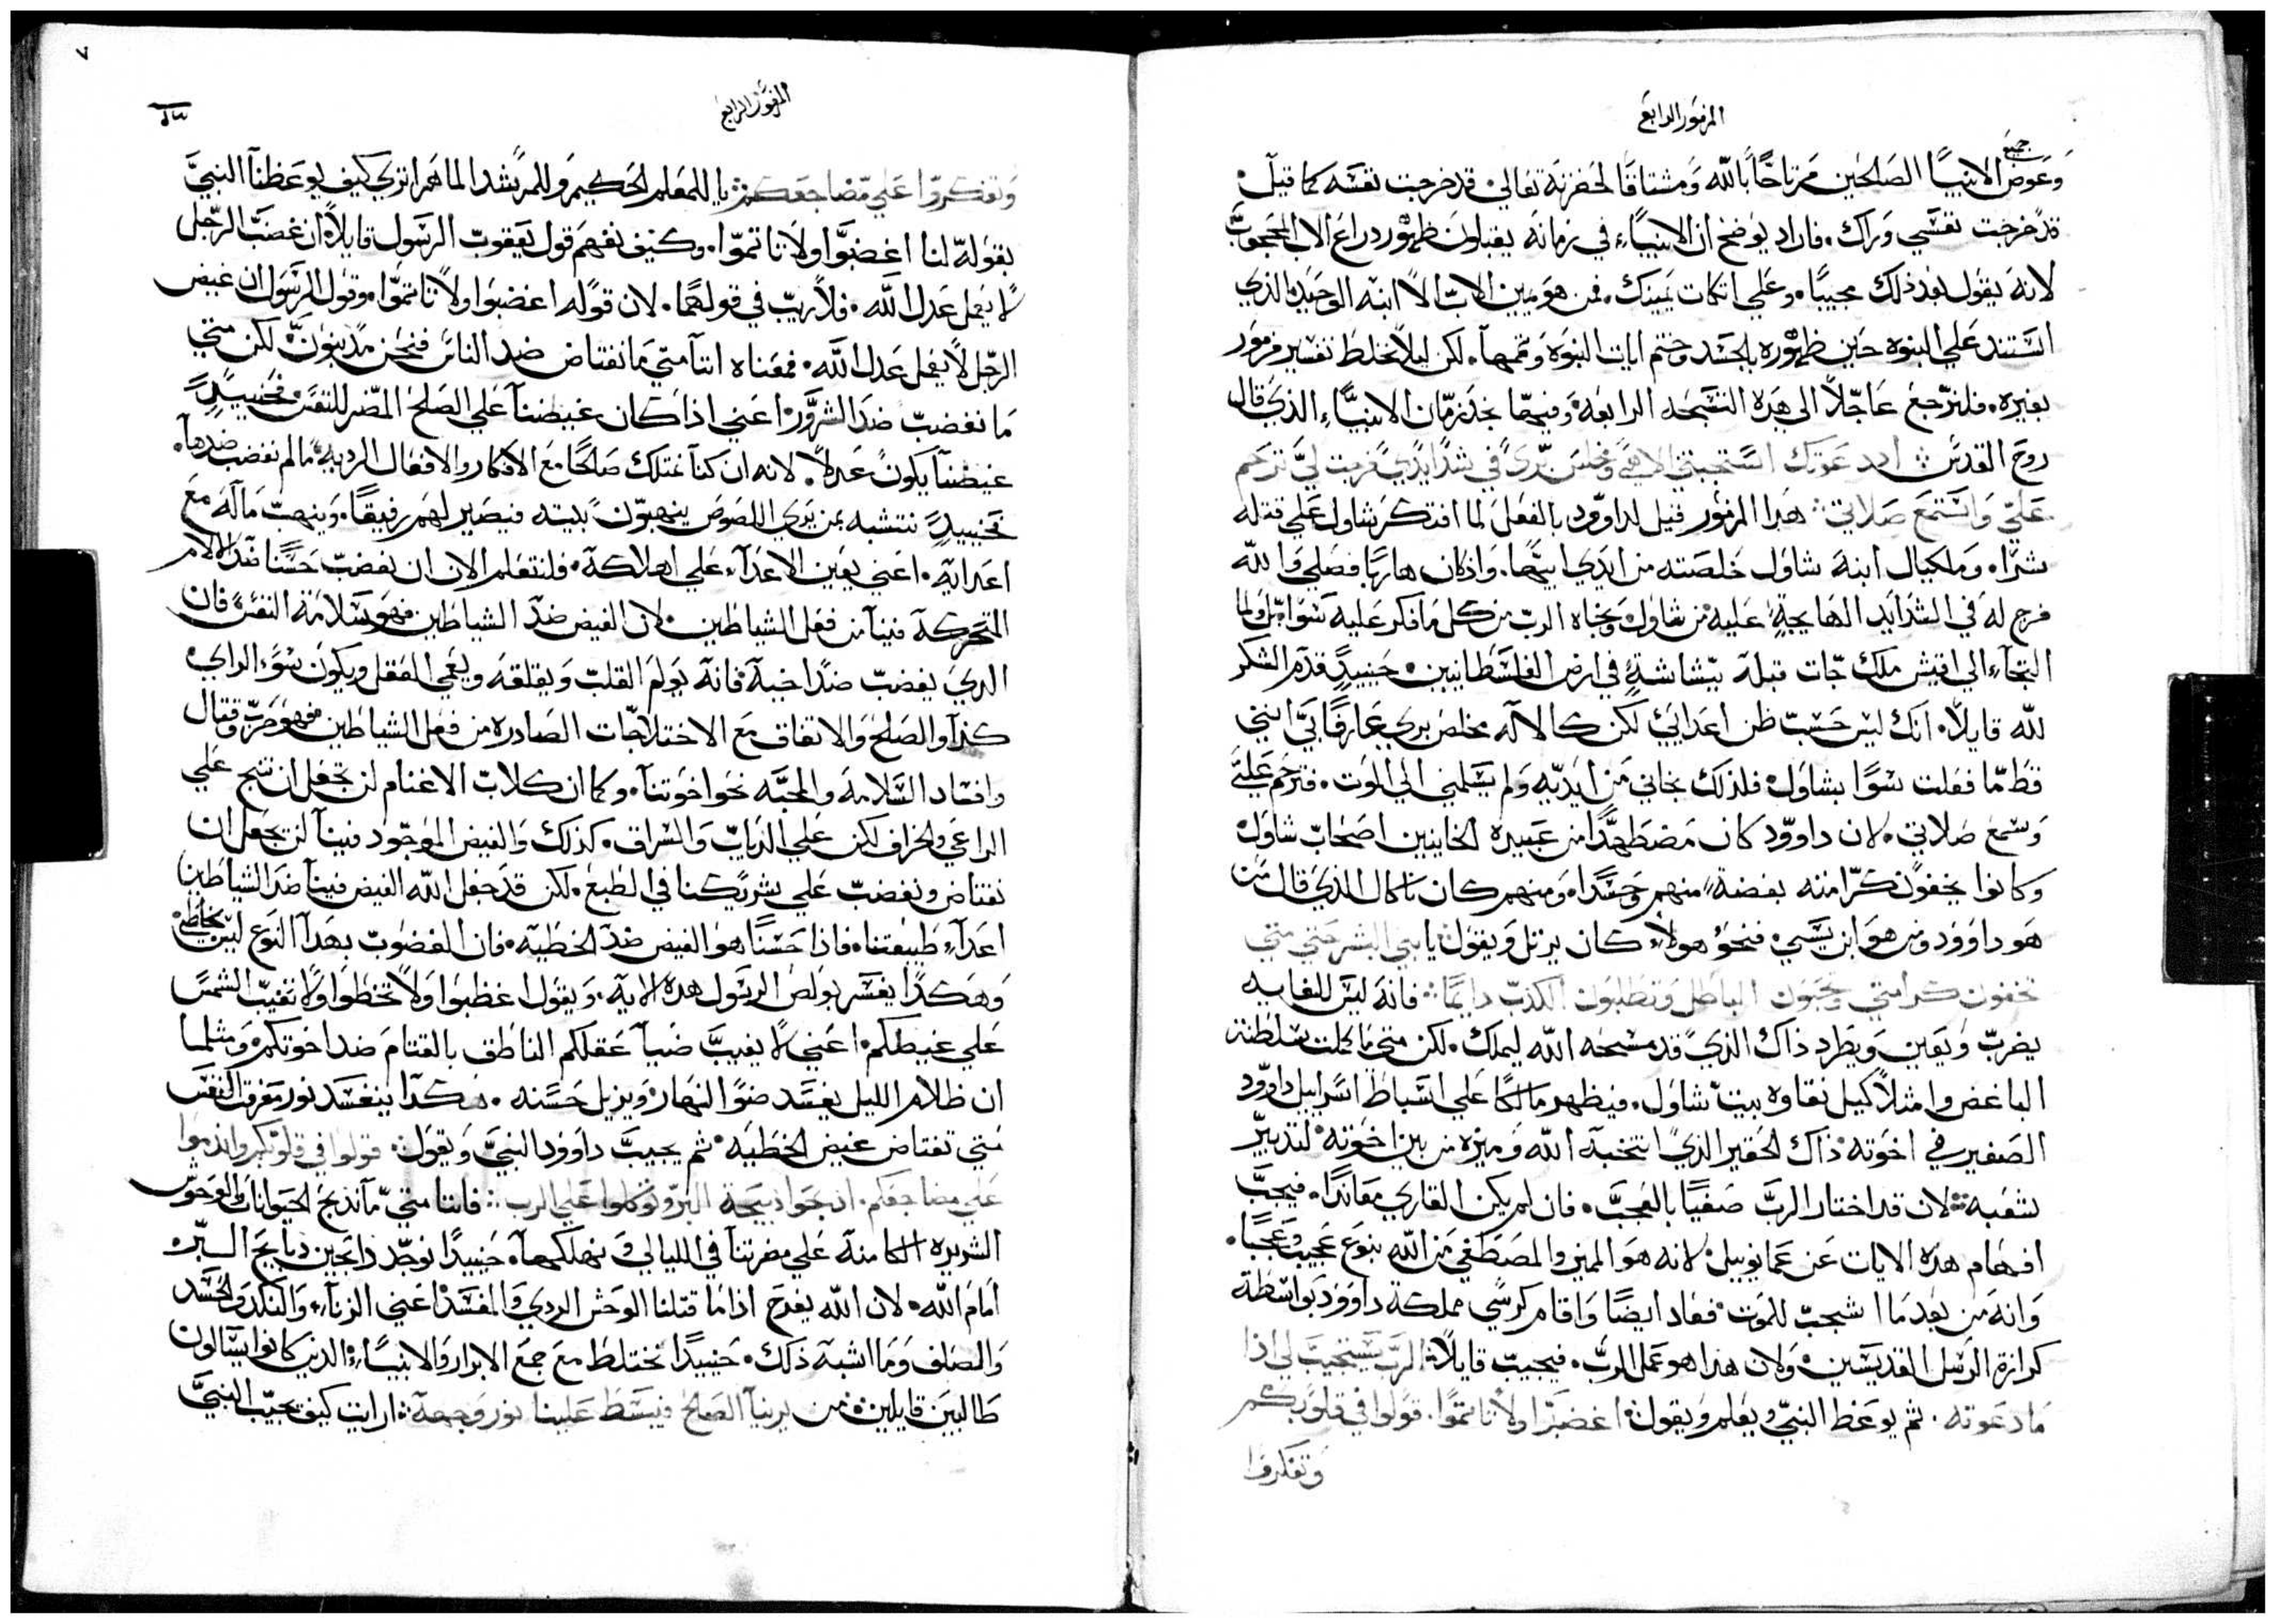 المزمور الرابع
جميع
وعوض الانبيا الصالحين مرتاحًا بالله ومشتاقًا لحضرته تعالي قد خرجت نفسه كما قيل
قد خرجت نفسي وراك. فاراد يوضح ان الانبياء في زمانه يقبلون ظهور دراع الاب المحجوب
لانه يقول بعد ذلك مجيبًا. وعلي اتكات يمينك. فمن هو يمين الاب الا ابنه الوحيد الذي
استند علي النبوه حين ظهوره بالجسد وختم ايات النبوة وتممها. لكن ليلا نخلط تفسير مزمور
بغيره. فلنرجع عاجلاً الي هذه التسبحه الرابعه وفيها نجد زمان الانبياء الذي قال
روح القدس اد دعوتك استجبتني الاهي ومخلص بري في شدايدي فرجت لي ترحم
علي واستمع صلاتي هدا المزمور قيل لداوود بالفعل لما افتكر شاول علي قتله
شرًا. وملكيال ابنة شاول خلصته من ايدي ابيها. واذ كان هاربًا فصلي والله
فرج له في الشدايد الهايجة عليه من شاول ونجاه الرب من كل ما فكر عليه سوا ولما
التجاء الي اقيش ملك جات قبله ببشاشةٍ في ارض الفلسطانيين حينيدٍ قدم الشكر
لله قايلاً. انك ليس حسب ظن اعدايي لكن كالاله مخلص بري عارفًا بي انني
قط ما فعلت سوًا بشاول فلذلك نجاني من ايديه ولم يسلمني الي الموت. فترحم علي
وسمع صلاتي. لان داوود كان مضطهدًا من عبيده الخاينين اصحاب شاول
وكانوا يخفون كرامته بغضة منهم وحسدًا. ومنهم كان نابال الذي قال من
هو داوود ومن هو ابن يسي فنحو هولاء كان يرتل ويقول يا بني البشر حتي متي
تخفون كرامتي وتحبون الباطل وتطلبون الكدب دايمًا فانه ليس للغايه
يضرب ويقين ويطرد ذاك الذي قد مسحه الله ليملك. لكن متي ما كملت سلطنة
الباغض وامتلا كيل نقاوة بيت شاول. فيظهر مالكا علي اسباط اسراييل داوود
الصغير في اخوته ذاك الحقير الذي انتخبه الله وميزه من بين اخوته لتدبير
شعبه لان قد اختار الرب صفيًا بالعجب. فان لم يكن القاري معاندًا. فيجب
افهام هذه الايات عن عمانوييل لانه هو المميز والمصطفي من الله بنوع عجيب وعجبًا.
وانه من بعد ما اشجب للموت فعاد ايضًا واقام كرسي مملكة داوود بواسطة
كرازة الرسل القديسين ولان هذا هو عمل الرب. فيجيب قايلاً الرب يستجيب لي اذا
ما دعوته. ثم يوعظ النبي ويعلم ويقول اغضبوا ولا تاتموا. قولوا في قلوبكم
وتفكروا
٧
المزمور الرابع
وتفكروا علي مضاجعكم يا للمعلم الحكيم وللمرشد الماهر اتري كيف يوعظنا النبي
بقوله لنا اغضبوا ولا تاتموا. وكيف نفهم قول يعقوب الرسول قايلاً ان غضب الرجل
لا يعمل عدل الله. فلا ريب في قولهما. لان قوله اغضبوا ولا تاتموا. وقول الرسول ان غيض
الرجل لا يعمل عدل الله. فمعناه اننا متي ما نغتاض ضد الناس فنحن مدنبون لكن متي
ما نغضب ضد الشرور اعني اذا كان غيضنا علي الصلح المضر للنفس فحينيدٍ
غيضنا يكون عدلاً. لانه ان كنا نمتلك صلحًا مع الافكار والافعال الرديه ما لم نغضب ضدها.
فحينيدٍ نتشبه بمن يري اللصوص ينهبون بيته فيصير لهم رفيقًا. وينهب ماله مع
اعدايه. اعني يعين الاعداء علي اهلاكه. فلنتعلم الان ان نغضب حسنًا ضد الالام
المتحركة فينا من فعل الشياطين. لان الغيض ضد الشياطين فهو سلامة النفس فان
الدي يغضب ضد اخيه فانه يولم القلب ويقلقه ويعمي العقل ويكون سوء الراي
كنزا والصلح والاتفاق مع الاختلاجات الصادره من فعل الشياطين فهو حرب وقتال
وافساد السلامه والمحبه نحو اخوتنا. وكما ان كلاب الاغنام لن تجعل ان تنبح علي
الراعي والخراف لكن علي الدياب والسراق. كذلك والغيض الموجود فينا لن يجعل ان
نغتاض ونغضب علي شريكنا في الطبع. لكن قد جعل الله الغيض فينا ضد الشياطين
اعداء طبيعتنا. فاذا حسنًا هو الغيض ضد الخطيه. فان الغضوب بهذا النوع ليس بخاطي
وهكدا يفسر بولص الرسول هده الايه. ويقول اغظبوا ولا تخطوا ولا تغيب الشمس
علي غيظكم. اعني لا يغيب ضيا عقلكم الناطق بالقتام ضد اخوتكم ومثلما
ان ظلام الليل يفسد ضو النهار ويزيل حسنه. هكدا ينفسد نور معرفة النفس
متي تغتاض غيض الخطيه ثم يجيب داوود النبي ويقول قولوا في قلوبكم واندموا
علي مضاجعكم. ادبحوا دبيحة البر وتوكلوا علي الرب فاننا متي ما ندبح الحيوانات والوحوش
الشريره الكامنه علي مضرتنا في الليالي ونهلكها. حينيدًا نوجد دابحين دبايح البر
امام الله. لان الله يفرح اذا ما قتلنا الوحش الردي والمفسد اعني الزناء والنكد والحسد
والصلف وما اشبه ذلك. حينيدًا نختلط مع جمع الابرار والانبياء الدين كانوا يسالون
طالبين قايلين من يرينا الصالح فيسط علينا نور وجهه ارايت كيف يجيب النبي